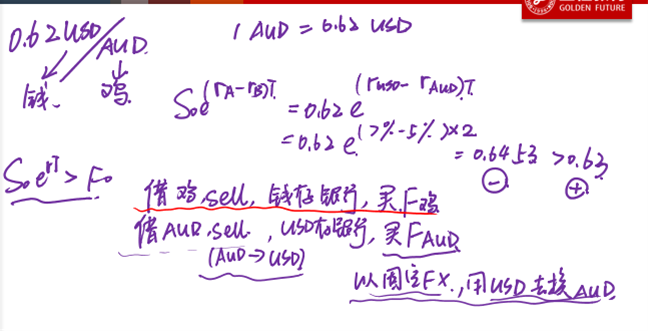 GOLDEN FUTURE
0.62 USD/AUD
1 AUD = 0.62 USD
钱 鸡
S₀e^(rA-rB)T = 0.62e^(rUSD-rAUD)T
= 0.62e^(7%-5%)×2
= 0.6453 > 0.63
⊖ ⊕
S₀e^rT > F₀
借鸡, sell, 钱存银行, 买F鸡
借AUD, sell, USD存银行, 买FAUD
(AUD→USD)
以固定FX, 用USD去换AUD